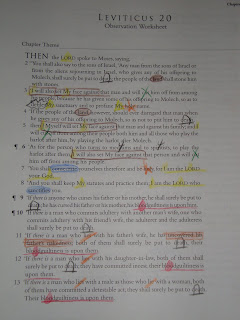 Chapter
LEVITICUS 20
Observation Worksheet
Chapter Theme
THEN the LORD spoke to Moses, saying,
2 "You shall also say to the sons of Israel, 'Any man from the sons of Israel or
from the aliens sojourning in Israel, who gives any of his offspring to
Molech, shall surely be put to death; the people of the land shall stone him
with stones.
3 'I will also set My face against that man and will cut him off from among
his people, because he has given some of his offspring to Molech, so as to
My sanctuary and to profane My holy name.
4 'If the people of the land, however, should ever disregard that man when
he gives any of his offspring to Molech, so as not to put him to
5 then I Myself will set My face against that man and against his family; and I
will cut off from among their people both him and all those who play the
harlot after him, by playing the harlot after Molech.
6 'As for the person who turns to and to spiritists, to play the
harlot after them, I will also set My face against that person and will cut
him off from among his people.
7 'You shall consecrate yourselves therefore and be holy, for I am the LORD
your God.
8 'And you shall keep My statutes and practice them; I am the LORD who
sanctifies you.
¶ 9 'If there is anyone who curses his father or his mother, he shall surely be put to
his father or his mother, his
¶ 10 'If there is a man who commits adultery with another man's wife, one who
commits adultery with his friend's wife, the adulterer and the adulteress
shall surely be put to
11 'If there is a man who lies with his father's wife, he has uncovered his
father's nakedness; both of them shall surely be put to their
bloodguiltiness is upon them.
12 'If there is a man who lies with his daughter-in-law, both of them shall
surely be put to they have committed incest, their bloodguiltiness is
upon them.
13 'If there is a man who lies with a male as those who lie with a woman, both
of them have committed a detestable act; they shall surely be put to
Their bloodguiltiness is upon them.